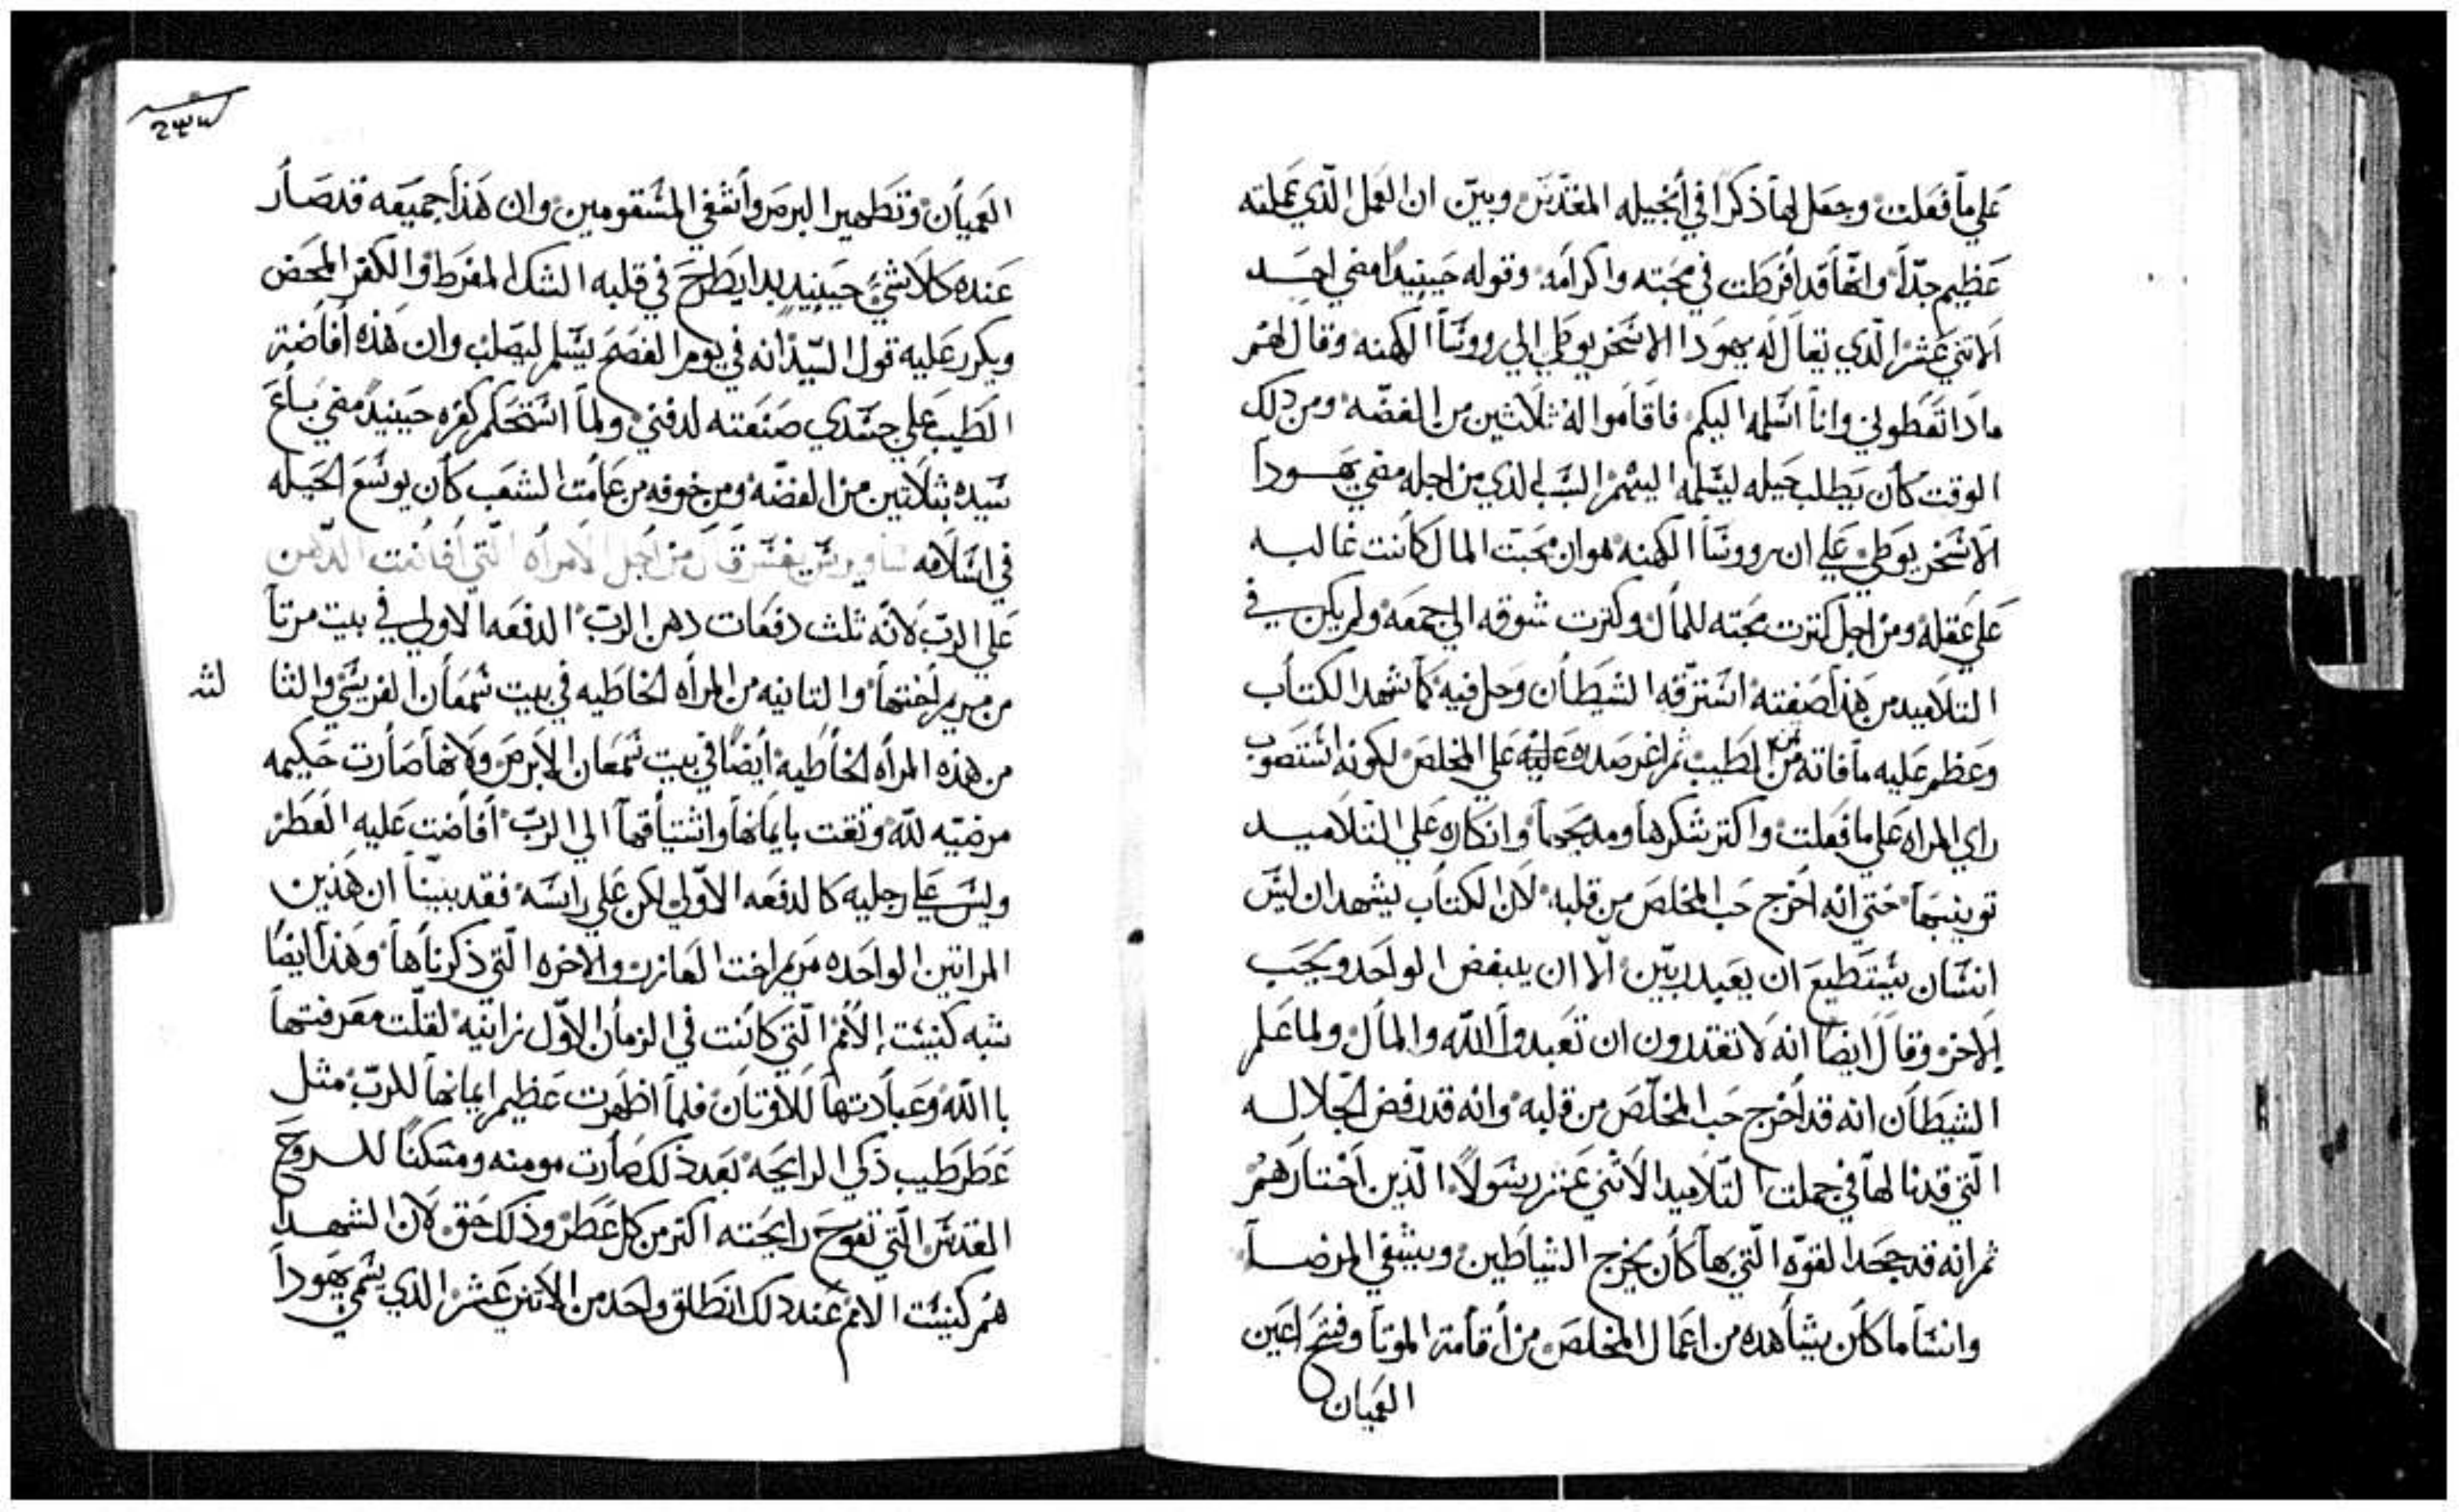 علي ما فعلت وجعل لها ذكرا في انجيله المقدس وبين ان العمل الذي عملته
عظيم جدا وانها قد افرطت في محبته واكرامه وقوله حينيد امضي احد
الاتني عشر الذي يقال له يهودا الاسخريوطي الي رووسا الكهنه وقال لهم
مادا تعطوني وانا اسلمه اليكم فاقاموا له ثلاثين من الفضه ومن دلك
الوقت كان يطلب حيله ليسلمه اليهم السبب الذي من اجله مضي يهودا
الاسخريوطي علي ان رووسا الكهنه هو ان محبت المال كانت غالبه
علي عقله ومن اجل كترت محبته للمال وكترت شوقه الي جمعه ولم يكن في
التلاميد من هذا صفته استرقه الشيطان وحل فيه كما شهد الكتاب
وعظم عليه ما فاته من الطيب تم اغر صدره عليه علي المخلص لكونه استصوب
راي المراه علي ما فعلت واكتر شكرها ومديحها وانكاره علي التلاميد
توبيخها حتي انه اخرج حب المخلص من قلبه لان الكتاب يشهد ان ليس
انسان يستطيع ان يعبد ربين الا ان يبغض الواحد ويحب
الاخر وقال ايضا انه لا تقدرون ان تعبدوا الله والمال ولما علم
الشيطان انه قد اخرج حب المخلص من قلبه وانه قد رفض الجلاله
التي قد نالها في جملت التلاميد الاتني عشر رسولا الذين اختارهم
ثم انه قد جحد القوه التي بها كان يخرج الشياطين ويشفي المرضا
وانسا ما كان يشاهده من اعمال المخلص من اقامة الموتا وفتح اعين
العميان
العميان وتطهير البرص وأشفي المسقومين وان هذا جميعه قد صار
عنده كلا شي حينيد بدا يطرح في قلبه الشك المفرط والكفر المحض
ويكرر عليه قول السيد انه في يوم الفصح يسلم ليصلب وان هذه أفاضة
الطيب علي جسدي صنعته لدفني ولما استحكم كفره حينيد مضي باع
سيده بثلاثين من الفضه ومن خوفه من عامت الشعب كان يوسع الحيله
في اسلامه ساويرس يفسر قال من اجل الامراه التي أفاضت الدهن
علي الرب لانه ثلث دفعات دهن الرب الدفعه الاولي في بيت مرتا
من مريم أختها والتانيه من المراه الخاطيه في بيت شمعان الفريسي والثا
لثه
من هذه المراه الخاطيه أيضا في بيت شمعان الابرص ولانها صارت حكيمه
مرضيه لله وثقت بايمانها واشتياقها الي الرب أفاضت عليه العطر
وليس علي رجليه كالدفعه الاولي لكن علي راسه فقد بينا ان هذين
المراتين الواحده مريم اخت العازر والاخره التي ذكرناها وهذا ايضا
شبه كنيست الامم التي كانت في الزمان الاول زانيه لقلت معرفتها
باالله وعبادتها للاوتان فلما اظهرت عظيم ايمانها للرب مثل
عطر طيب ذكي الرايحه بعد ذلك صارت مومنه ومسكنا للروح
القدس التي تفوح رايحته اكتر من كل عطر وذلك حق لان الشهدا
هم كنيست الامم عند دلك انطلق واحد من الاتني عشر الذي يسمي يهودا